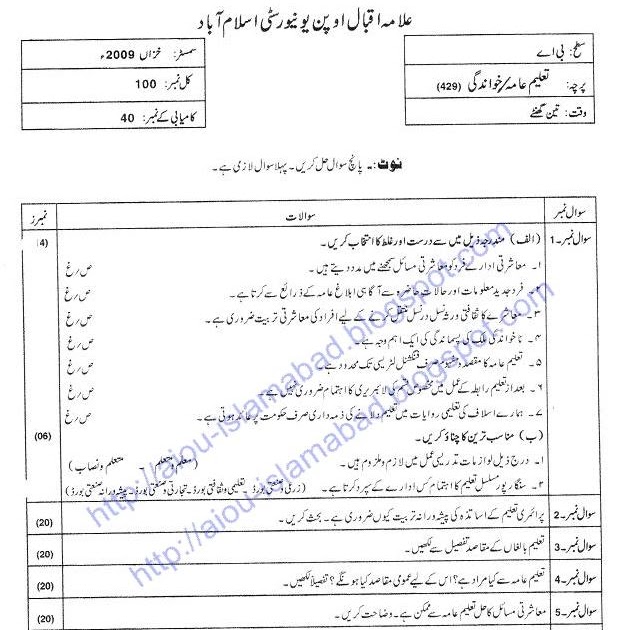 علامہ اقبال اوپن یونیورسٹی اسلام آباد
سطح: بی اے
پرچہ: تعلیم عامہ/خواندگی (429)
وقت: تین گھنٹے
سمسٹر: خزاں 2009ء
کل نمبر: 100
کامیابی کے نمبر: 40
نوٹ:۔ پانچ سوال حل کریں۔ پہلا سوال لازمی ہے۔
سوال نمبر سوالات نمبرز
سوال نمبر۔1 (الف) مندرجہ ذیل میں سے درست اور غلط کا انتخاب کریں۔ (14)
۱۔ معاشرتی ادارے فرد کو معاشرتی مسائل سمجھنے میں مدد دیتے ہیں۔ ص/غ
۲۔ فرد جدید معلومات اور حالات حاضرہ سے آگاہی ابلاغ عامہ کے ذرائع سے کرتا ہے۔ ص/غ
۳۔ معاشرے کا ثقافتی ورثہ نسل در نسل منتقل کرنے کے لیے افراد کی معاشرتی تربیت ضروری ہے۔ ص/غ
۴۔ ناخواندگی ملک کی پسماندگی کی ایک اہم وجہ ہے۔ ص/غ
۵۔ تعلیم عامہ کا مقصد و مفہوم صرف فنکشنل لٹریسی تک محدود ہے۔ ص/غ
۶۔ بعد از تعلیم رابطہ کے عمل میں مخصوص قسم کی لائبریری کا اہتمام ضروری نہیں ہے۔ ص/غ
۷۔ ہمارے اسلاف کی تعلیمی روایات میں تعلیم دلانے کی ذمہ داری صرف حکومت پر عائد ہوتی ہے۔ ص/غ
(ب) مناسب ترین کا چناؤ کریں۔ (06)
۱۔ درج ذیل لوازمات تدریسی عمل میں لازم و ملزوم ہیں۔ (معلم و متعلم ۔ متعلم ۔ متعلم و نصاب)
۲۔ سنگاپور مسلسل تعلیم کا اہتمام کس ادارے کے سپرد کرتا ہے۔ (زرعی و صنعتی بورڈ۔ تعلیمی و ثقافتی بورڈ۔ تجارتی و صنعتی بورڈ۔ پیشہ ورانہ صنعتی بورڈ)
سوال نمبر۔2 پرائمری تعلیم کے اساتذہ کی پیشہ ورانہ تربیت کیوں ضروری ہے۔ بحث کریں۔ (20)
سوال نمبر۔3 تعلیم بالغاں کے مقاصد تفصیل سے لکھیں۔ (20)
سوال نمبر۔4 تعلیم عامہ سے کیا مراد ہے؟ اس کے لیے عمومی مقاصد کیا ہونگے؟ تفصیلاً لکھیں۔ (20)
سوال نمبر۔5 معاشرتی مسائل کا حل تعلیم عامہ سے ممکن ہے۔ وضاحت کریں۔ (20)
http://aiou-islamabad.blogspot.com
http://aiou-islamabad.blogspot.com